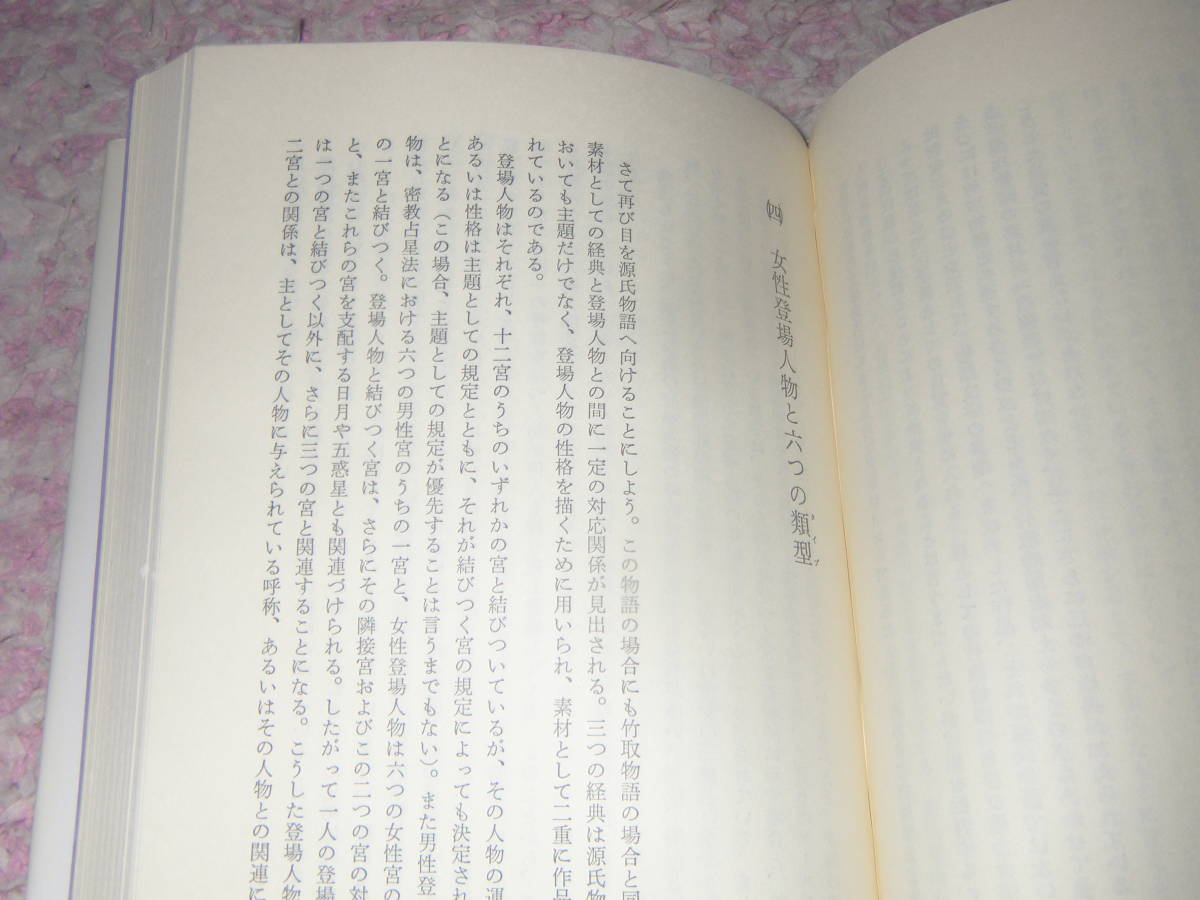 ㈣ 女性登場人物と六つの類型タイプ
さて再び目を源氏物語へ向けることにしよう。この物語の場合にも竹取物語の場合と同
素材としての経典と登場人物との間に一定の対応関係が見出される。三つの経典は源氏物
おいても主題だけでなく、登場人物の性格を描くために用いられ、素材として二重に作品
れているのである。
登場人物はそれぞれ、十二宮のうちのいずれかの宮と結びついているが、その人物の運
あるいは性格は主題としての規定とともに、それが結びつく宮の規定によっても決定され
とになる（この場合、主題としての規定が優先することは言うまでもない）。また男性登
物は、密教占星法における六つの男性宮のうちの一宮と、女性登場人物は六つの女性宮の
の一宮と結びつく。登場人物と結びつく宮は、さらにその隣接宮およびこの二つの宮の対
と、またこれらの宮を支配する日月や五惑星とも関連づけられる。したがって一人の登場
は一つの宮と結びつく以外に、さらに三つの宮と関連することになる。こうした登場人物
二宮との関係は、主としてその人物に与えられている呼称、あるいはその人物との関連に